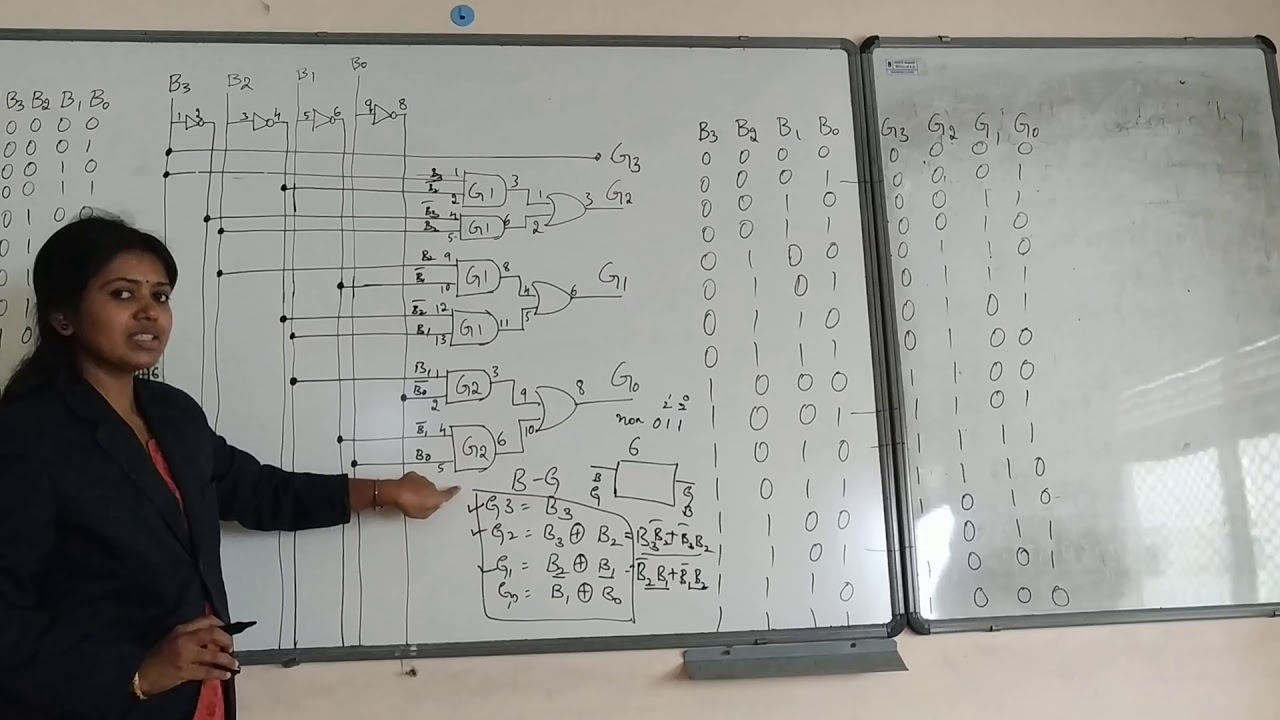 B3 B2 B1 B0
0 0 0 0
0 0 0 1
0 0 1 0
0 0 1 1
0 1 0 0
0 1
0
1
1
1
0
B3 B2 B1 B0
1 2 3 4 5 6 9 8
G3
B3 1
B̅2 2
G1 3
1 2 3
G2
B̅3 4
B2 5
G1 6
B2 9
B̅1 10
G1 8
4 5 6
G1
B̅2 12
B1 13
G1 11
B1 1
B̅0 2
G2 3
9 10 8
G0
B̅1 4
B0 5
G2 6
non 011
6
B G
G B
B-G
G3 = B3
G2 = B3 ⊕ B2 = B3B̅2+B̅3B2
G1 = B2 ⊕ B1 = B̅2B1+B̅1B2
G0 = B1 ⊕ B0
B3 B2 B1 B0
0 0 0 0
0 0 0 1
0 0 1 0
0 0 1 1
0 1 0 0
0 1 0 1
0 1 1 0
0 1 1 1
1 0 0 0
1 0 0 1
1 0 1 0
1 0 1 1
1 1 0 0
1 1 0 1
1 1 1 0
1 1 1 1
G3 G2 G1 G0
0 0 0 0
0 0 0 1
0 0 1 1
0 0 1 0
0 1 1 0
0 1 1 1
0 1 0 1
0 1 0 0
1 1 0 0
1 1 0 1
1 1 1 1
1 1 1 0
1 0 1 0
1 0 1 1
1 0 0 1
1 0 0 0